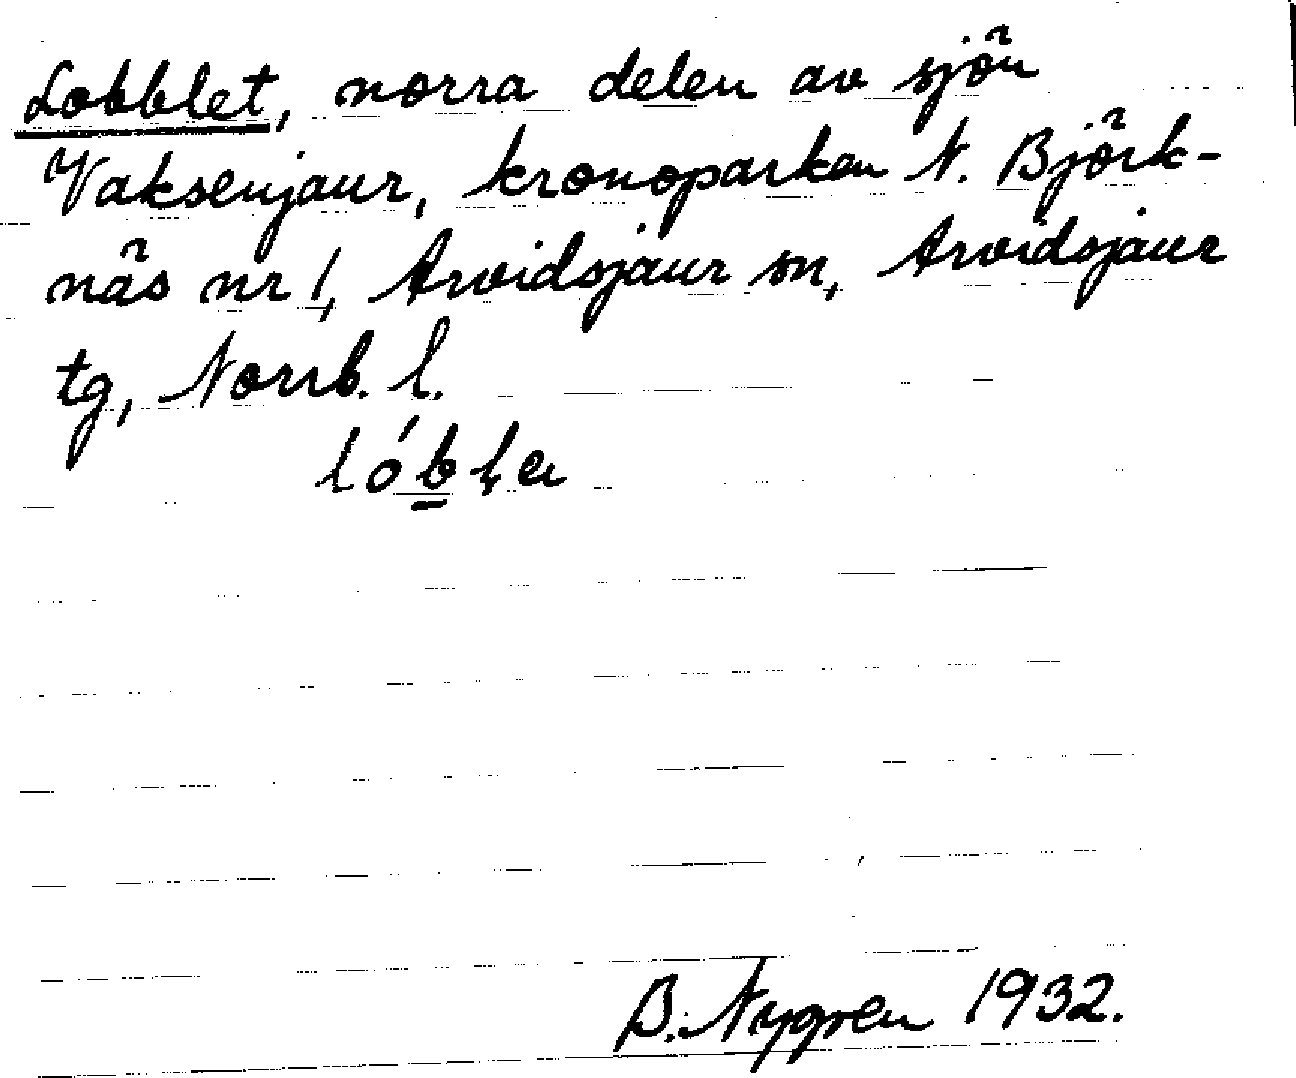 Lobblet, norra delen av sjön
Vaksenjaur, kronoparken N. Björk-
näs nr 1, Arvidsjaur sn, Arvidsjaur
tg, Norrb. l.
lób̲l̥a
B. Nygren 1932.